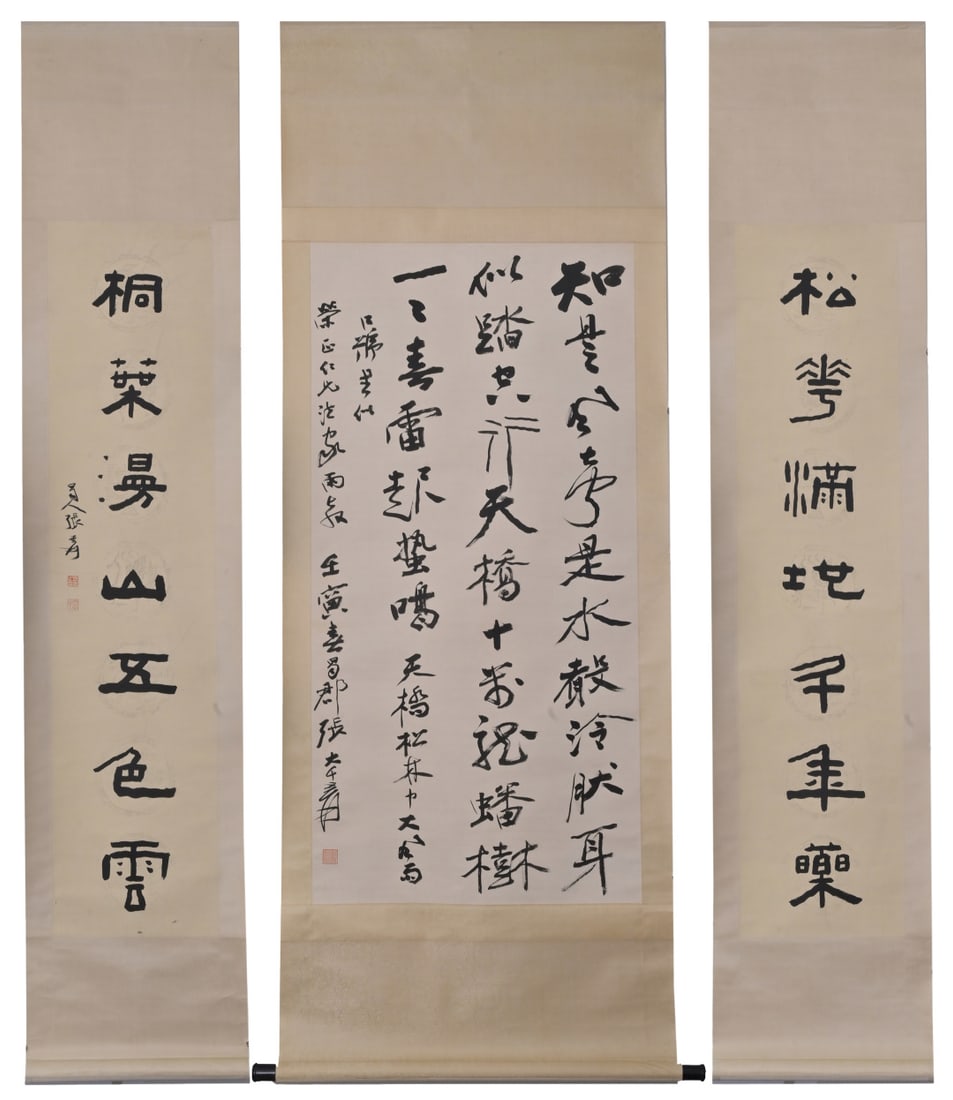 松華滿地千年藥
知是風聲是水聲泠肰耳
似踏空行天橋十萬龍蟠樹
一々春雷起蟄鳴 天橋松林中大風雨
口號書似
榮正仁兄法家兩教 壬寅春蜀郡張大千爰
桐葉漫山五色雲
蜀人張爰